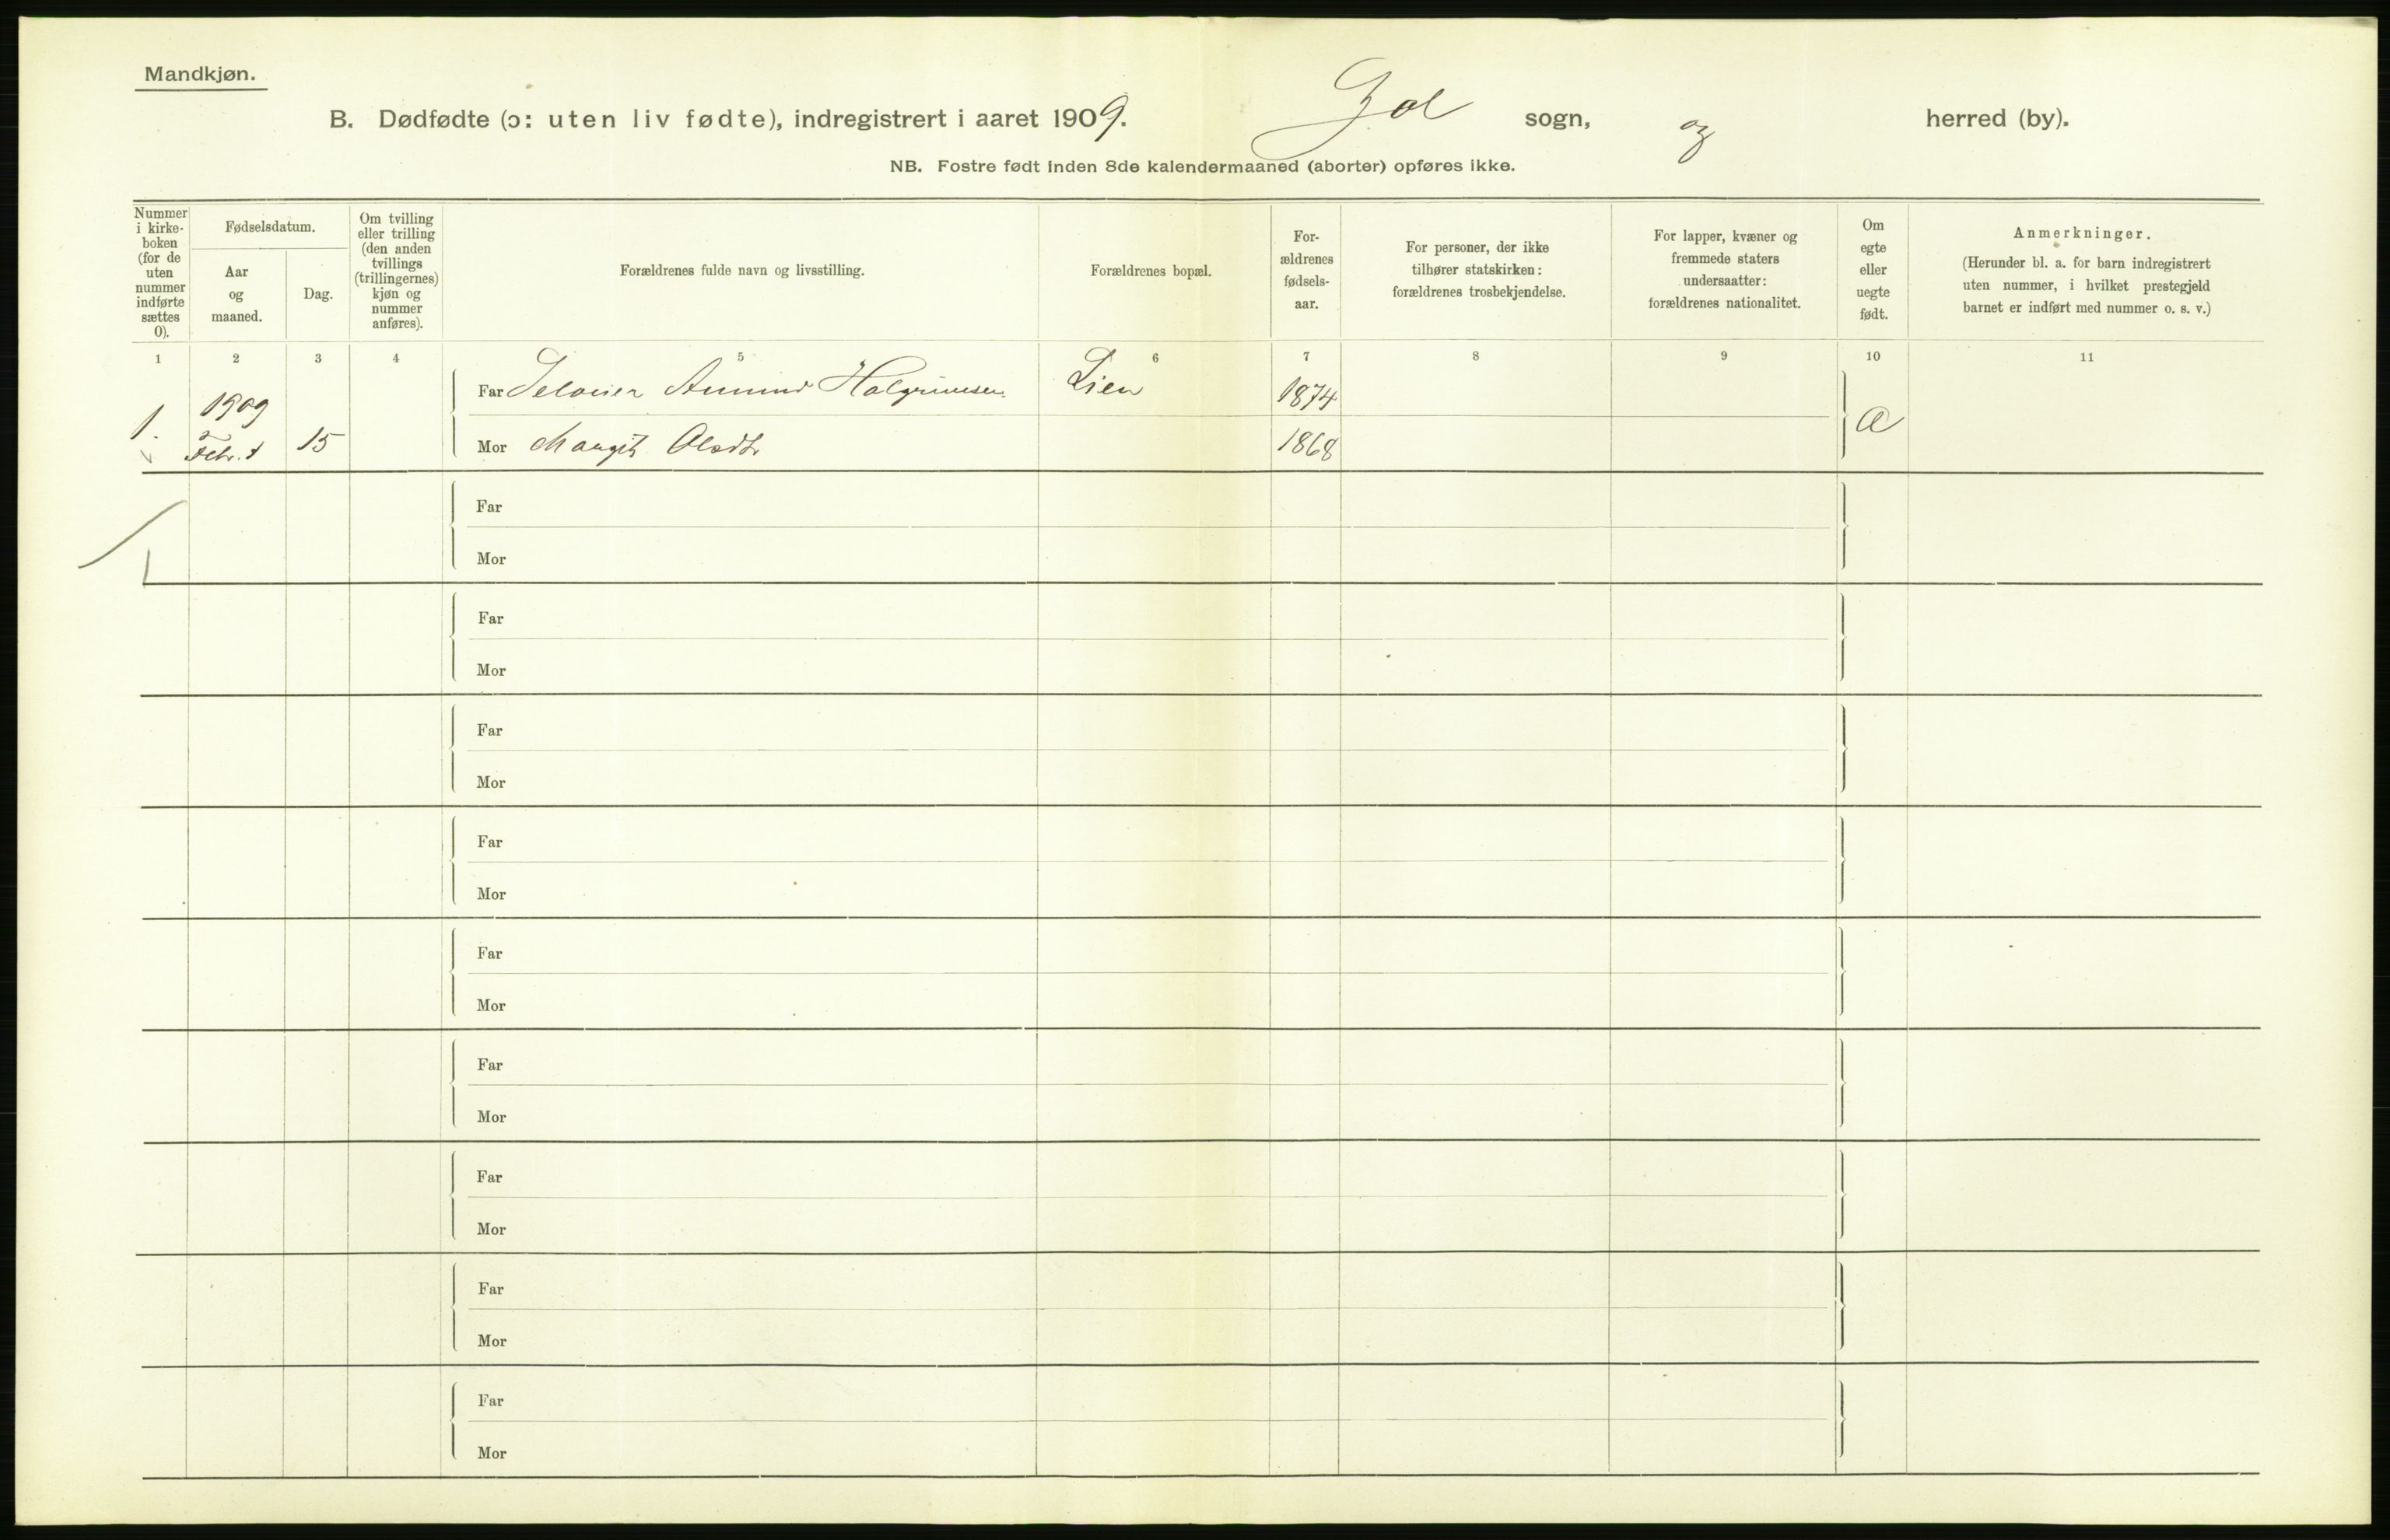 Mandkjøn.
B. Dødfødte (ɔ: uten liv fødte), indregistrert i aaret 1909. Gol sogn, og herred (by).
NB. Fostre født inden 8de kalendermaaned (aborter) opføres ikke.
Nummer i kirke-boken (for de uten nummer indførte sættes 0).
Fødselsdatum.
Aar og maaned.
Dag.
Om tvilling eller trilling (den anden tvillings (trillingernes) kjøn og nummer anføres).
Forældrenes fulde navn og livsstilling.
Forældrenes bopæl.
For-ældrenes fødsels-aar.
For personer, der ikke tilhører statskirken: forældrenes trosbekjendelse.
For lapper, kvæner og fremmede staters undersaatter: forældrenes nationalitet.
Om egte eller uegte født.
Anmerkninger.
(Herunder bl. a. for barn indregistrert uten nummer, i hvilket prestegjeld barnet er indført med nummer o. s. v.)
1 2 3 4 5 6 7 8 9 10 11
1. 1909 Febr. 15
Far Seloeier Amund Halgrimsen Lien 1874
Mor Margit Olsdtr 1868
Far
Mor
Far
Mor
Far
Mor
Far
Mor
Far
Mor
Far
Mor
Far
Mor
Far
Mor
Far
Mor